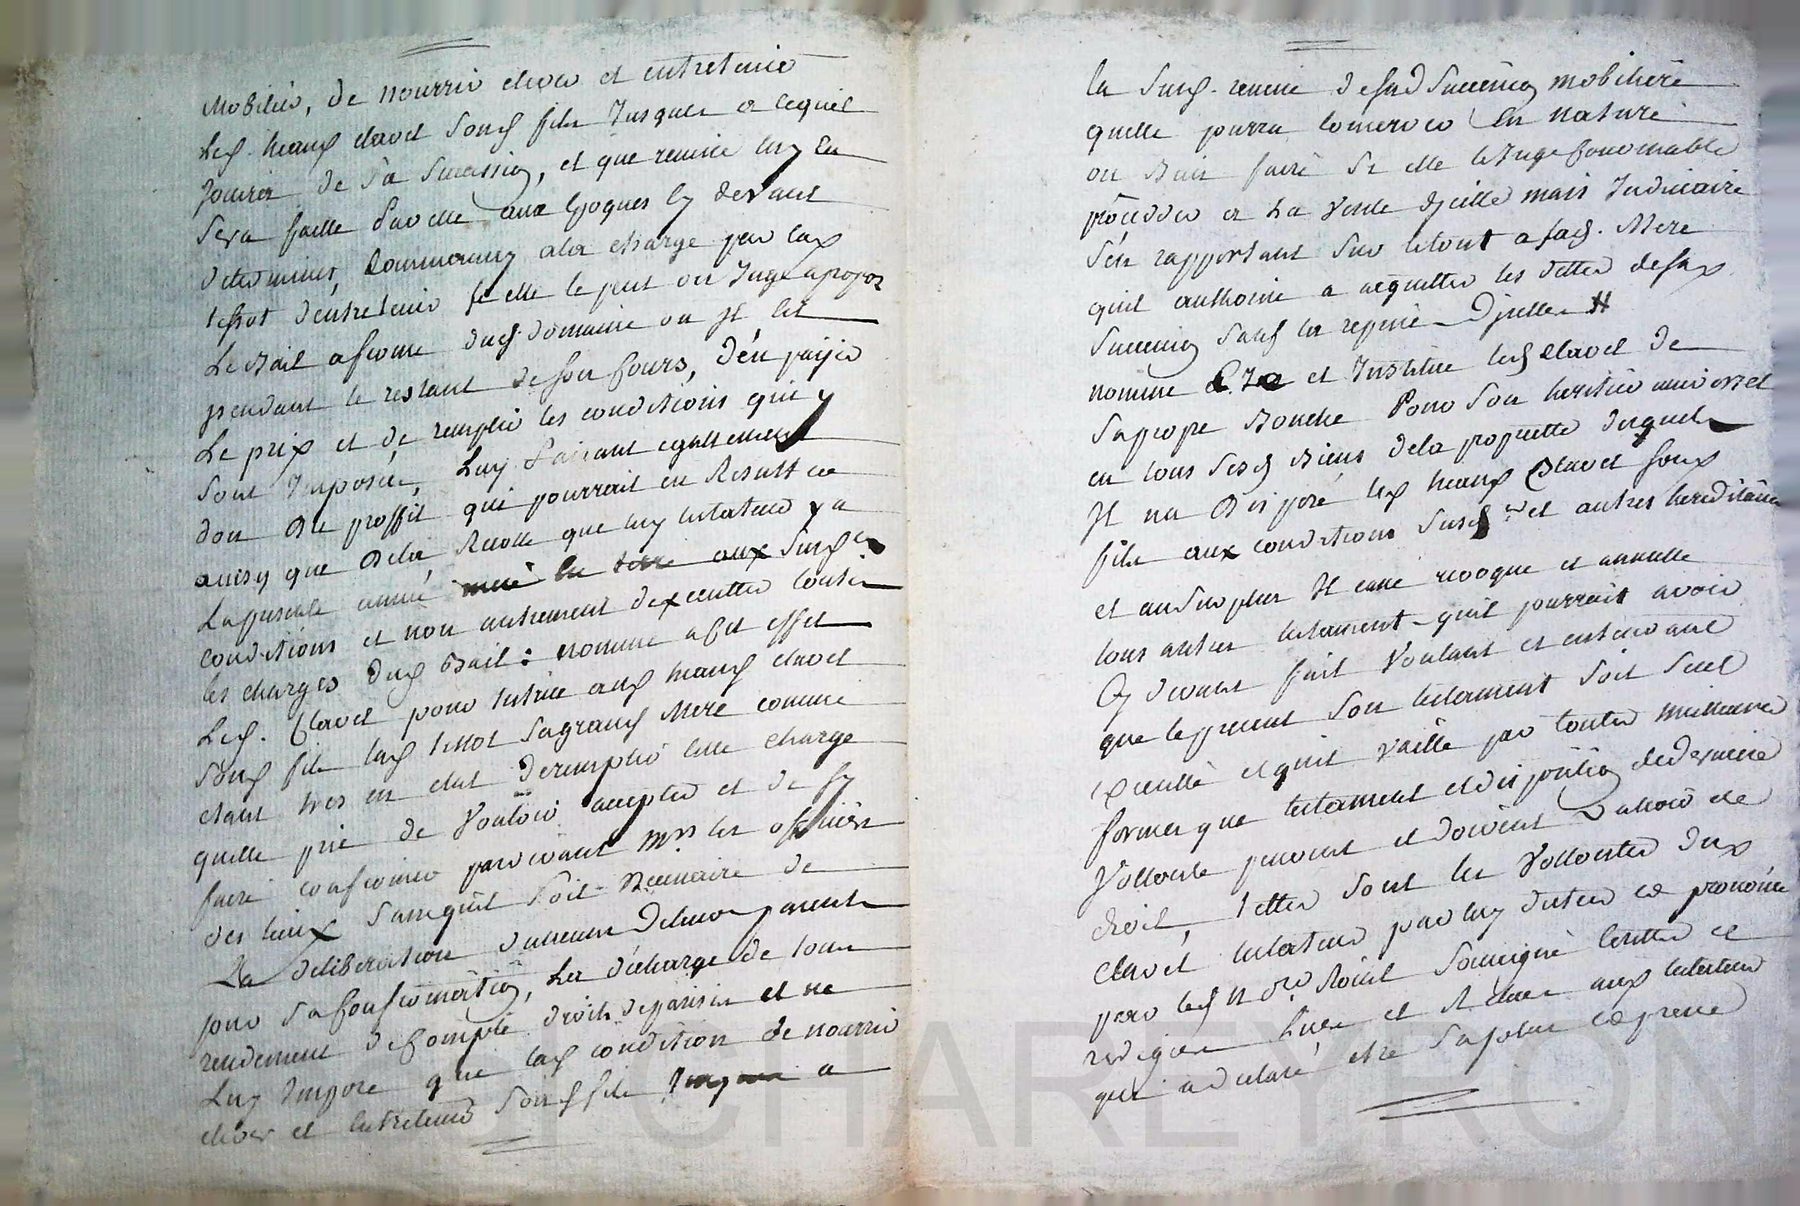 Mobilier, de nourrir elever et entretenir
Led. Jean Clavel Son fils Jusques a lequel
Jouira de Sa Succession, et que remise luy En
Sera faitte d'avoir aux Epoques Cy devant
determinées, Comme aussy a la charge par lad.
d'entretenir Si elle le peut ou Juge apropos
Le Bail a ferme dud. domaine ou Il Est
pendant le restant de Son Cours, d'en payer
Le prix et de remplir les conditions qui y
Sont Imposées, Luy faisant egallement
don Du proffit qui pourrait en Resulter
ainsy que De la Recolte que luy testateur y a
La presente année aux Susd.
conditions et non autrement d'executter toutes
les charges dud. Bail : nomme a Cet effet
Led. Clavel pour tutrice aud. Jean Clavel
Sond. fils lad. Sa grand Mere comme
etant tres en etat de remplir Cette charge
quelle prie de Vouloir accepter et de S'y
faire confirmer pardevant Mrs les officiers
des lieux Sans quil Soit Necessaire de
La deliberation d'aucuns De leurs parents
pour Sa Confirmation, La decharge de tout
rendement de Compte et ne
Luy Impose que lad. condition de nourrir
elever et Entretenir Sond. fils Jusques a
la Susd. remise de Sad. Succession mobiliere
quelle pourra Conserver En nature
ou Bien faire Si elle le Juge Convenable
proceder a La Vente d'jcelle mais Judiciaire
S'en rapportant Sur le tout a Sad. Mere
quil authorise a acquitter les dettes de Sad.
Succession Sauf la reprise D'jcelles #
nomme et Institue led. Clavel de
Sa propre Bouche Pour Son heritier universel
en tous Sesd. Biens De la proprietté desquels
Il na Disposé led. Jean Clavel Sond.
fils aux conditions Susd. et autres hereditaires
et au Surplus Il casse revoque et annulle
tous autres testament quil pourrait avoir
Cy devant fait Voulant et entendant
que le present Son testament Soit Seul
executté et quil Vaille par toutes meilleures
formes que testament et disposition de derniere
Vollonté peuvent et doivent Valloir de
droit, telles Sont les Vollontés dud.
Clavel testateur par luy dictées et prononcées
par led. Nore Roial Soussigné Ecrittes et
redigées Lues et Relues aud. testateur
qui a declaré etre Sa plus Expresse
CHAREYRON